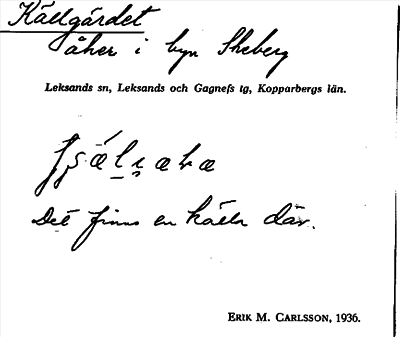 Källgärdet
åker i byn Skeberg
Leksands sn, Leksands och Gagnefs tg, Kopparbergs län.
Det finns en källa där.
ERIK M. CARLSSON, 1936.